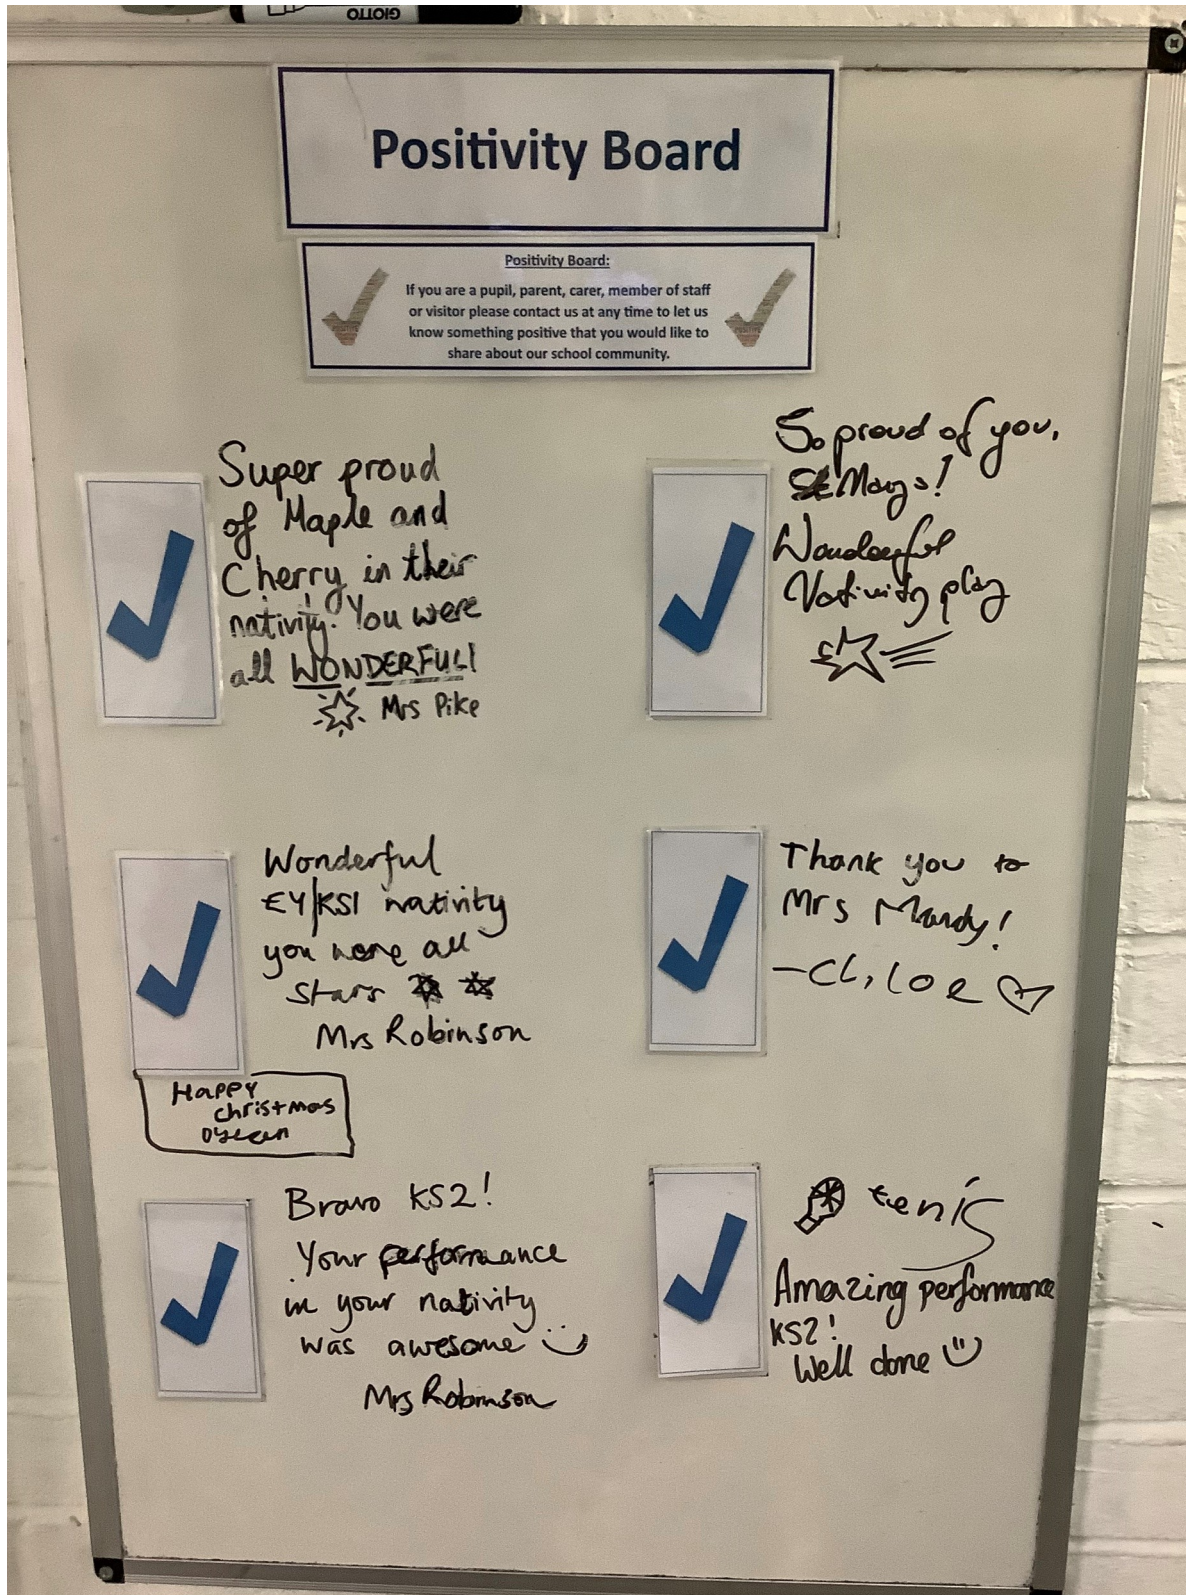 GIOTTO
Positivity Board
Positivity Board:
If you are a pupil, parent, carer, member of staff
or visitor please contact us at any time to let us
know something positive that you would like to
share about our school community.
Super proud
of Maple and
Cherry in their
nativity. You were
all WONDERFUL!
Mrs Pike
So proud of you,
St Mary's!
Wonderful
Nativity play
Wonderful
EY/KS1 nativity
you were all
stars
Mrs Robinson
Happy
christmas
Thank you to
Mrs Mandy!
-Chloe
Bravo KS2!
Your performance
in your nativity
was awesome
Mrs Robinson
tenis
Amazing performance
KS2!
Well done